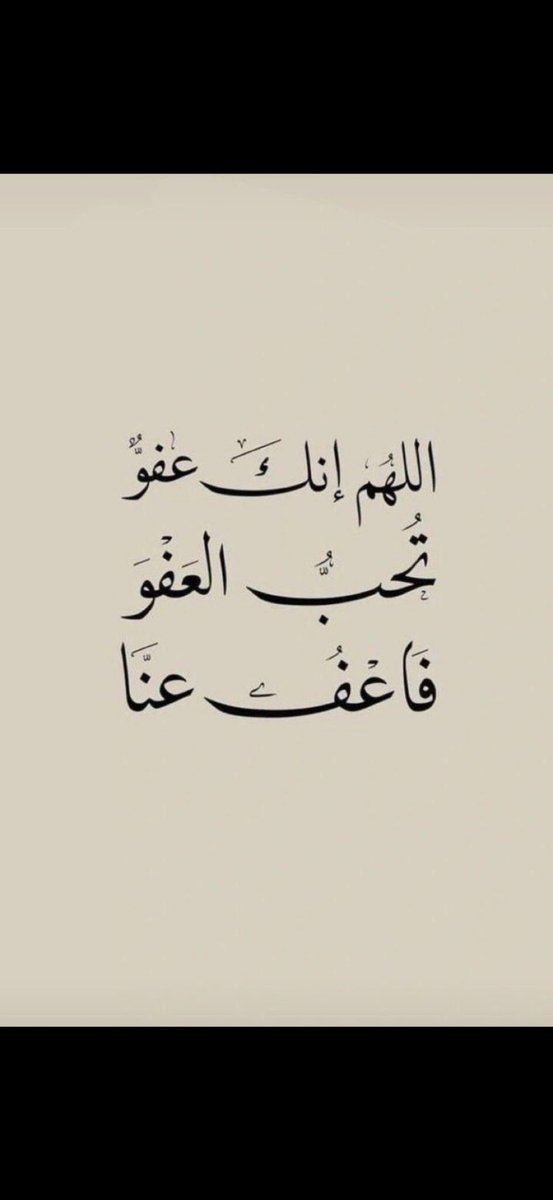 اللهُم إنكَ عفوٌّ
تُحبُّ العَفْوَ
فَاعْفُ عنَّا